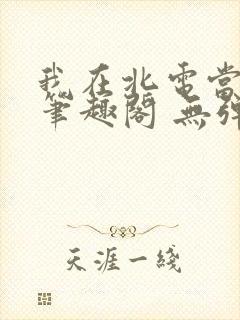 我在北電當
筆趣閣 無彈
天涯一綫